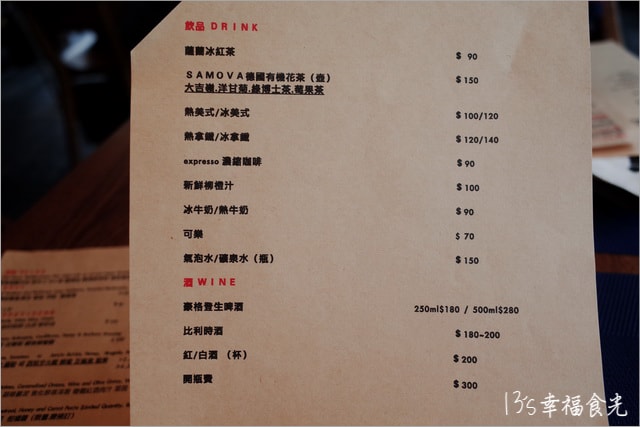 飲品 DRINK
蘿蔔冰紅茶 $ 90
SAMOVA德國有機花茶（壺） $150
大吉嶺.洋甘菊.綠博士茶.莓果茶
熱美式/冰美式 $100/120
熱拿鐵/冰拿鐵 $120/140
expresso 濃縮咖啡 $90
新鮮柳橙汁 $100
冰牛奶/熱牛奶 $90
可樂 $ 70
氣泡水/礦泉水（瓶） $150
酒 WINE
豪格登生啤酒 250ml$180 / 500ml$280
比利時酒 $180~200
紅/白酒 （杯） $200
開瓶費 $300
13's幸福食光